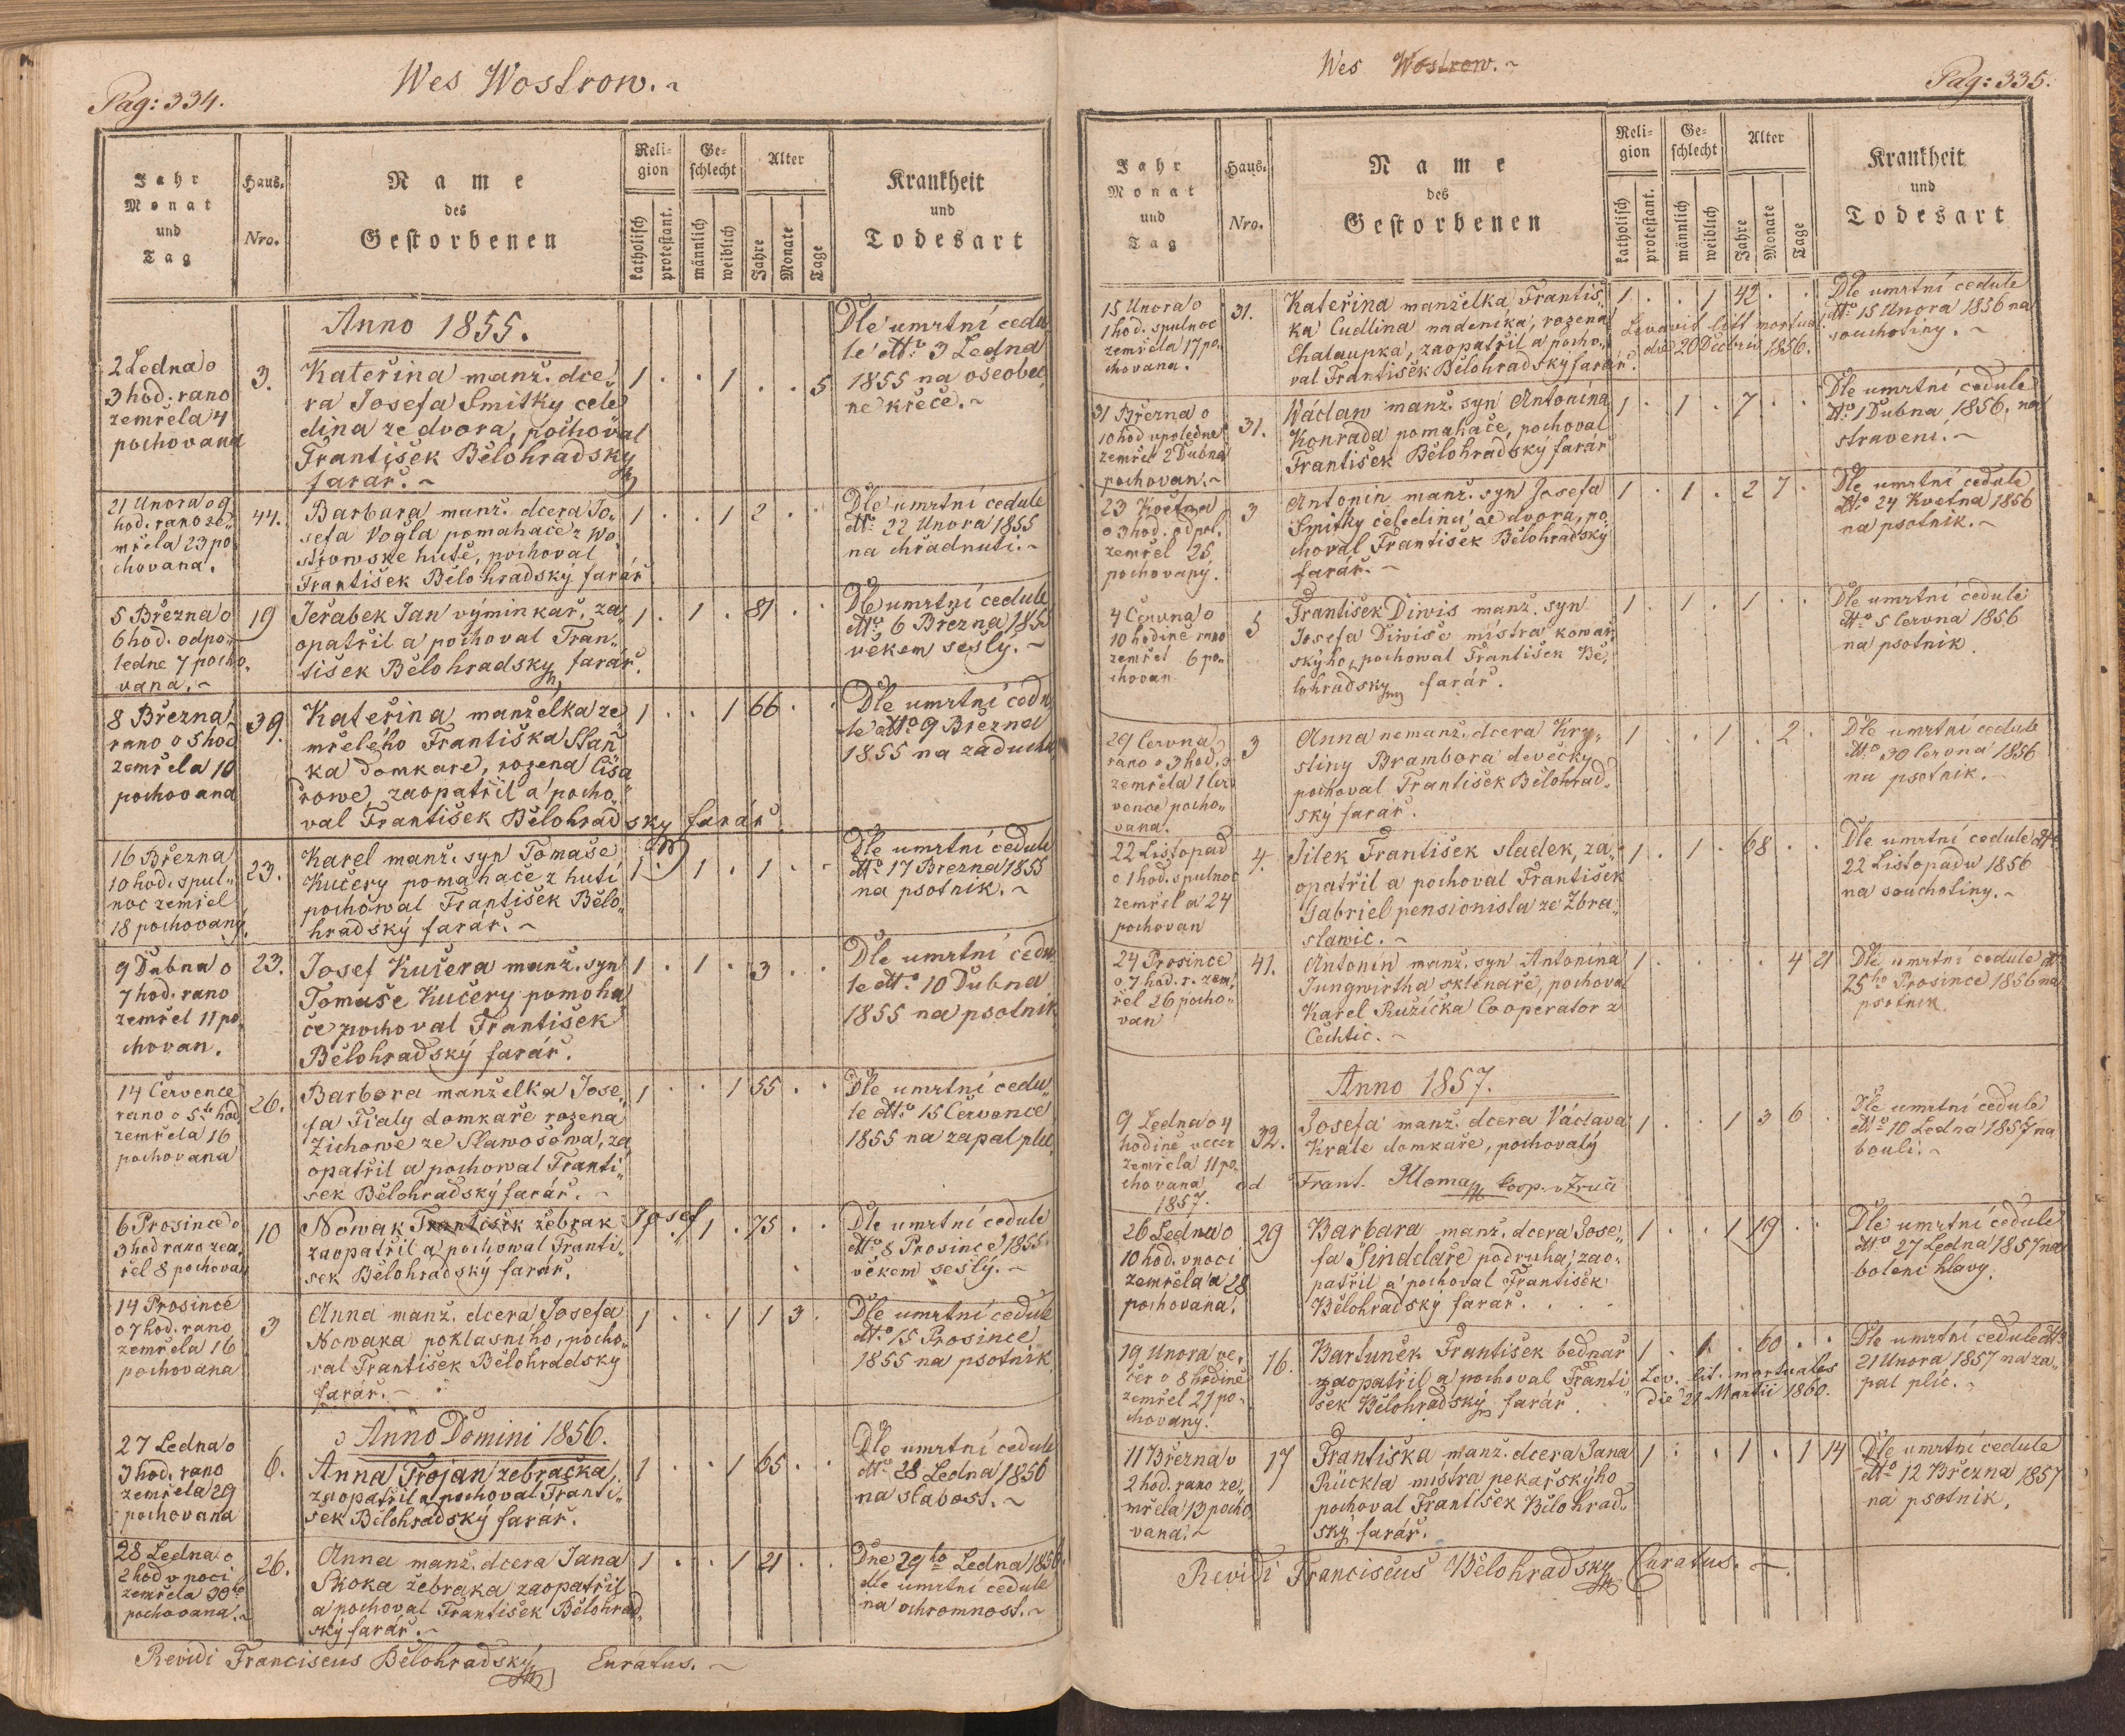 Pag: 334.
Wes Wostrow.
Jahr
Monat
und
Tag
Haus-
Nro.
Name
des
Gestorbenen
Reli-
gion
katholisch
protestant.
Ge-
schlecht
männlich
weiblich
Alter
Jahre
Monate
Tage
Krankheit
und
Todesart
Anno 1855.
2 Ledna o
3 hod. rano
zemřela 4
pochovana
3.
Kateřina manž. dce
ra Josefa Smitky čele
dina ze dvora, pochoval
František Bělohradsky
farař.
1 . . 1 . . 5
Dle umrtní cedu
le dtto 3 Ledna
1855 na oseobec
ne křeče.
21 Unora o 9
hod. rano ze
mřela 23 po
chovana.
44.
Barbara manž. dcera Jo
sefa Vogla pomahače z Wo
strowske hutě, pochoval
František Bělohradský farář
1 . . 1 2 . .
Dle umrtní cedule
dtto 22 Unora 1855
na chřadnuti.
5 Března o
6 hod. odpo
ledne 7 pocho
vana.
19
Jeřabek Jan výminkař, za
opatřil a pochoval Fran
tišek Bělohradsky farář.
1 . 1 . 81 . .
Dle umrtní cedule
dtto 6 Března 1855
věkem sešlý.
8 Března
rano o 5 hod
zemřela 10
pochovana
39.
Kateřina manželka ze
mřelého Františka Staň
ka domkare, rozena Cisa
rowe, zaopatřil a pocho
val František Bělohradsky farář.
1 . . 1 66 . .
Dle umrtní cedu
le dtto 9 Března
1855 na zaduchu
16 Března
10 hod. spul
noc zemřel
18 pochovaný.
23.
Karel manž. syn Tomaše
Kučery pomahače z huti
pochowal František Bělo
hradský farář.
1 . 1 . 1 . .
Dle umrtní cedule
dtto 17 Brezna 1855
na psotnik.
9 Dubna o
7 hod. rano
zemřel 11 po
chovan.
23.
Josef Kučera manž. syn
Tomaše Kučery pomoha
če pochoval František
Bělohradský farář.
1 . 1 . 3 . .
Dle umrtní cedu
le dtto 10 Dubna
1855 na psotnik
14 Července
rano o 5té hod
zemřela 16
pochovana
26.
Barbora manželka Jose
fa Fialy domkaře rozena
Zichowe ze Slawošowa, za
opatřil a pochowal Franti
sek Bělohradský farář.
1 . . 1 55 . .
Dle umrtní cedu
le dtto 15 Července
1855 na zapal plic
6 Prosince o
3 hod rano zem
řel 8 pochovan
10
Nowak František žebrak Josef
zaopatřil a pochowal Franti
sek Bělohradský farář.
1 . 1 . 75 . .
Dle umrtní cedule
dtto 8 Prosince 1855
věkem sešlý.
14 Prosince
o 7 hod. rano
zemřela 16
pochovana
3
Anna manž. dcera Josefa
Nowaka poklasniho, pocho
val František Bělohradský
farář.
1 . . 1 1 3 .
Dle umrtní cedule
dtto 15 Prosince
1855 na psotnik
Anno Domini 1856.
27 Ledna o
3 hod. rano
zemřela 29
pochovana
6.
Anna Trojan žebračka,
zaopatřil a pochoval Franti
sek Bělohradský farář.
1 . . 1 65 . .
Dle umrtní cedule
dtto 28 Ledna 1856
na slabost.
28 Ledna o
2 hod v noci
zemřela 30ho
pochovana.
26.
Anna manž. dcera Jana
Skoka žebraka zaopatřil
a pochoval František Bělohrad
ský farář.
1 . . 1 21 . .
Dne 29ho Ledna 1856
dle umrtní cedule
na ochromnost.
Revidi Franciscus Bělohradský Curatus.
Wes Wostrow.
Pag: 335.
Jahr
Monat
und
Tag
Haus-
Nro.
Name
des
Gestorbenen
Reli-
gion
katholisch
protestant.
Ge-
schlecht
männlich
weiblich
Alter
Jahre
Monate
Tage
Krankheit
und
Todesart
15 Unora o
1 hod. spulnoc
zemřela 17 po
chovana.
31.
Kateřina manželka Františ
ka Cudlina nadenika, rozena
Chalaupka, zaopatřil a pocho
val František Bělohradský farář.
1 . . 1 42 . .
Levavit litt mortual.
die 20 Decbris 1856.
Dle umrtní cedule
dtto 15 Unora 1856 na
souchotiny.
31 Března o
10 hod upoledne
zemřel 2 Dubna
pochovan.
31.
Wáclaw manž. syn Antonína
Konrada pomahače, pochoval
František Bělohradský farář
1 . 1 . 7 . .
Dle umrtní cedule
dtto 1 Dubna 1856. na
straveni.
23 Května
o 3 hod. odpol.
zemřel 25
pochovaný.
3
Antonin manž. syn Josefa
Smitky čeledina ze dvora, po
choval František Bělohradský
farář.
1 . 1 . 2 7 .
Dle umrtní cedule
dtto 24 Kvetna 1856
na psotnik.
4 Června o
10 hodině rano
zemřel 6 po
chovan
5
František Diwis manž. syn
Josefa Diwiše mistra kowař
skýho, pochowal František Bě
lohradsky farář.
1 . 1 . 1 . .
Dle umrtní cedule
dtto 5 června 1856
na psotnik.
29 Června
rano o 3 hod.
zemřela 1 čer
vence pocho
vana.
3
Anna nemanž. dcera Kry
stiny Brambora děvečky
pochoval František Bělohrad
ský farář.
1 . . 1 . 2 .
Dle umrtní cedule
dtto 30 Června 1856
na psotnik.
22 Listopad
o 1 hod. spulnoc
zemřel a 24
pochovan
4.
Jilek František sladek, za
opatřil a pochoval František
Gabriel pensionista ze Zbra
slawic.
1 . 1 . 68 . .
Dle umrtní cedule dtto
22 Listopadu 1856
na souchotiny.
24 Prosince
o 7 hod. r. zem
řel 26 pocho
van
41.
Antonín manž. syn Antonína
Jungwirtha sklenaře, pochoval
Karel Ružička Cooperator z
Čechtic.
1 . . . . 4 21
Dle umrtní cedule dt
25ho Prosince 1856 na
psotnik
Anno 1857.
9 Ledna o 4
hodině večer
zemřela 11 po
chovana
1857.
32.
Josefa manž. dcera Václava
Krale domkaře, pochovalý
od Frant. Kloma Koop. v Zruči
1 . . 1 3 6 .
Dle umrtní cedule
dtto 10 Ledna 1857 na
bouli.
26 Ledna o
10 hod. v noci
zemřela a 28
pochovana.
29
Barbara manž. dcera Jose
fa Šindelaře podruha, zao
patřil a pochoval František
Bělohradský farář.
1 . . 1 19 . .
Dle umrtní cedule
dtto 27 Ledna 1857 na
bolení hlavy.
19 Unora ve
čer o 8 hodině
zemřel 21 po
chovaný.
16.
Bartunek František bednař
zaopatřil a pochoval Franti
šek Bělohradský farář.
1 . 1 . 60 . .
Lev. lit. mortuales
die 21 Martii 1860.
Dle umrtní cedule dtto
21 Unora 1857 na za
pal plic.
11 Března o
2 hod. rano ze
mřela 13 pocho
vana.
17
Františka manž. dcera Jana
Rückla mistra pekařskýho
pochoval František Bělohrad
ský farář.
1 . . 1 . 1 14
Dle umrtní cedule
dtto 12 Března 1857
na psotnik.
Revidi Franciscus Bělohradsky Curatus.